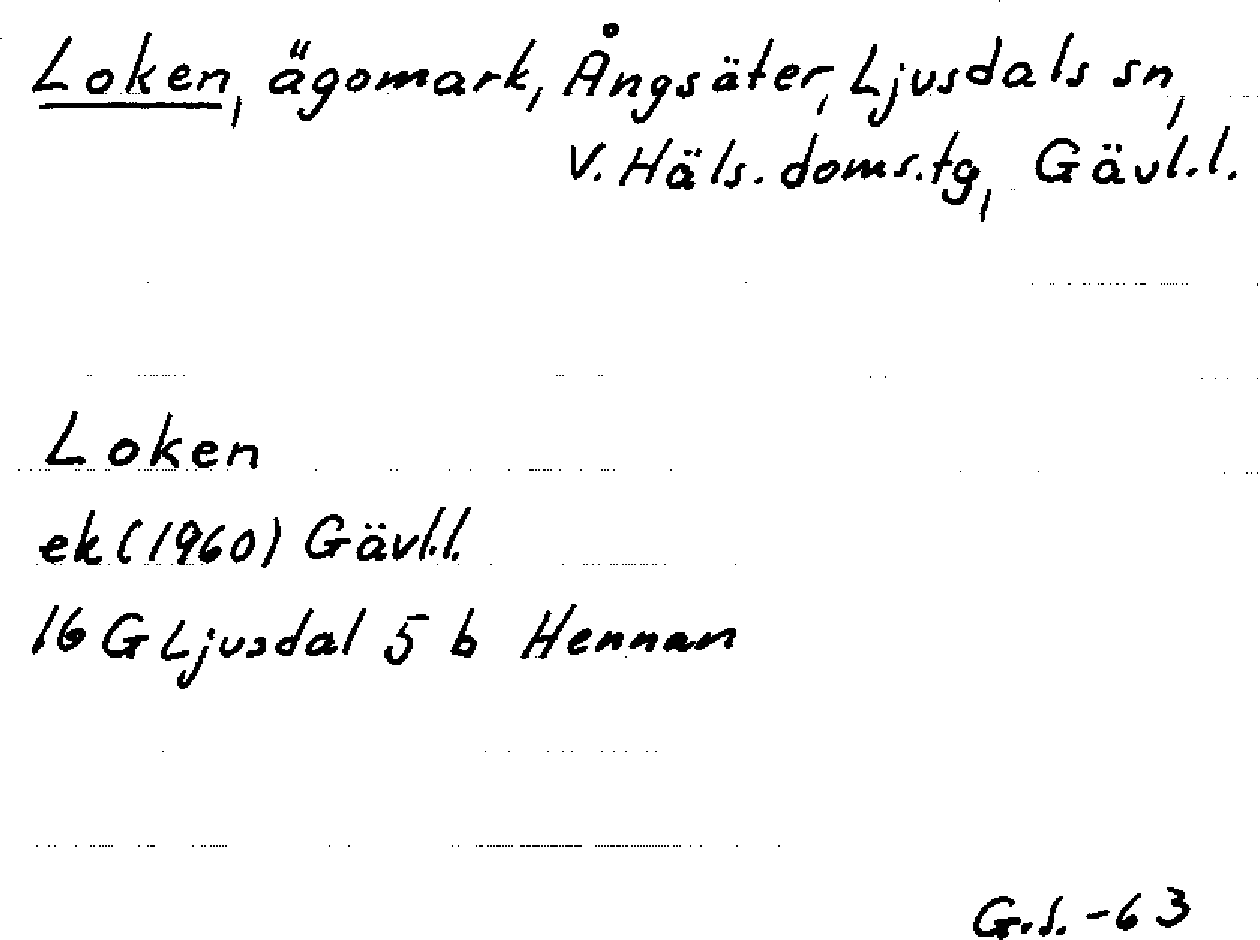 Loken, ägomark, Ångsäter, Ljusdals sn,
V. Häls. doms.tg, Gävl.l.
Loken
ek (1960) Gävl.l.
16 G Ljusdal 5 b Hennan
G.S. -63